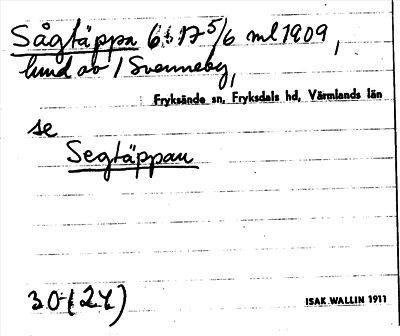 Sågtäppa 6:17 5/6 ml 1909,
lund av 1 Svenneby,
Fryksände sn, Fryksdals hd, Värmlands län
se
Segtäppan
30 (24)
ISAK WALLIN 1911